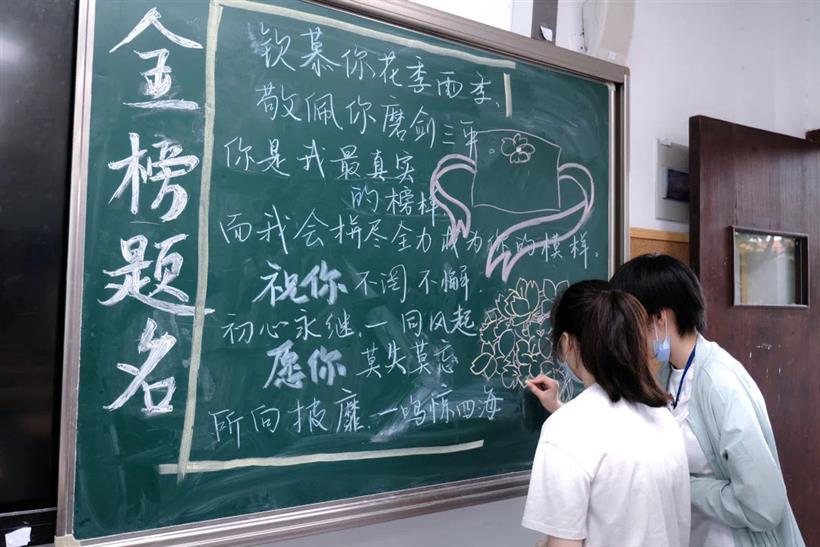 金榜题名
钦慕你花季雨季,
敬佩你磨剑三年。
你是我最真实
的榜样
而我会拼尽全力成为你的模样。
祝你 不困不懈.
初心永继.一同风起
愿你 莫失莫忘
所向披靡.一鸣惊四海